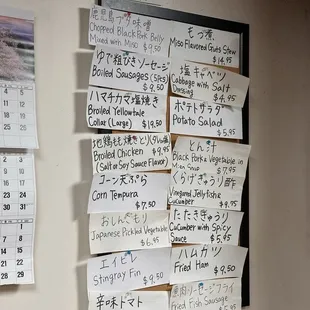 鹿児島ブタ味噌
Chopped Black Pork Belly
Mixed with Miso $9.50
ゆで粗びきソーセージ
Boiled Sausages (5Pcs)
$9.50
ハマチカマ塩焼き
Broiled Yellowtale
Collar (Large) $19.50
地鶏もも焼き
Broiled Chicken $9.95
(Salt or Soy Sauce Flavor)
コーン天ぷら
Corn Tempura
$7.50
おしんこもり
Japanese Pickled Vegetable
$6.95
エイヒレ
Stingray Fin $9.50
辛味トマト
もつ煮
Miso Flavored Guts Stew
$14.95
塩キャベツ
Cabbage with Salt
Dressing $4.95
ポテトサラダ
Potato Salad
$5.95
とん汁
Black Pork & Vegetable in
Miso Soup $7.95
くらげきゅうり酢
Vinegared Jellyfish &
Cucumber $9.95
たたききゅうり
Cucumber with Spicy
Sauce $5.95
ハムカツ
Fried Ham $9.50
魚肉ソーセージフライ
Fried Fish Sausage
$9.50
5
12
19
26
4
11
18
25
3
10
17
24
31